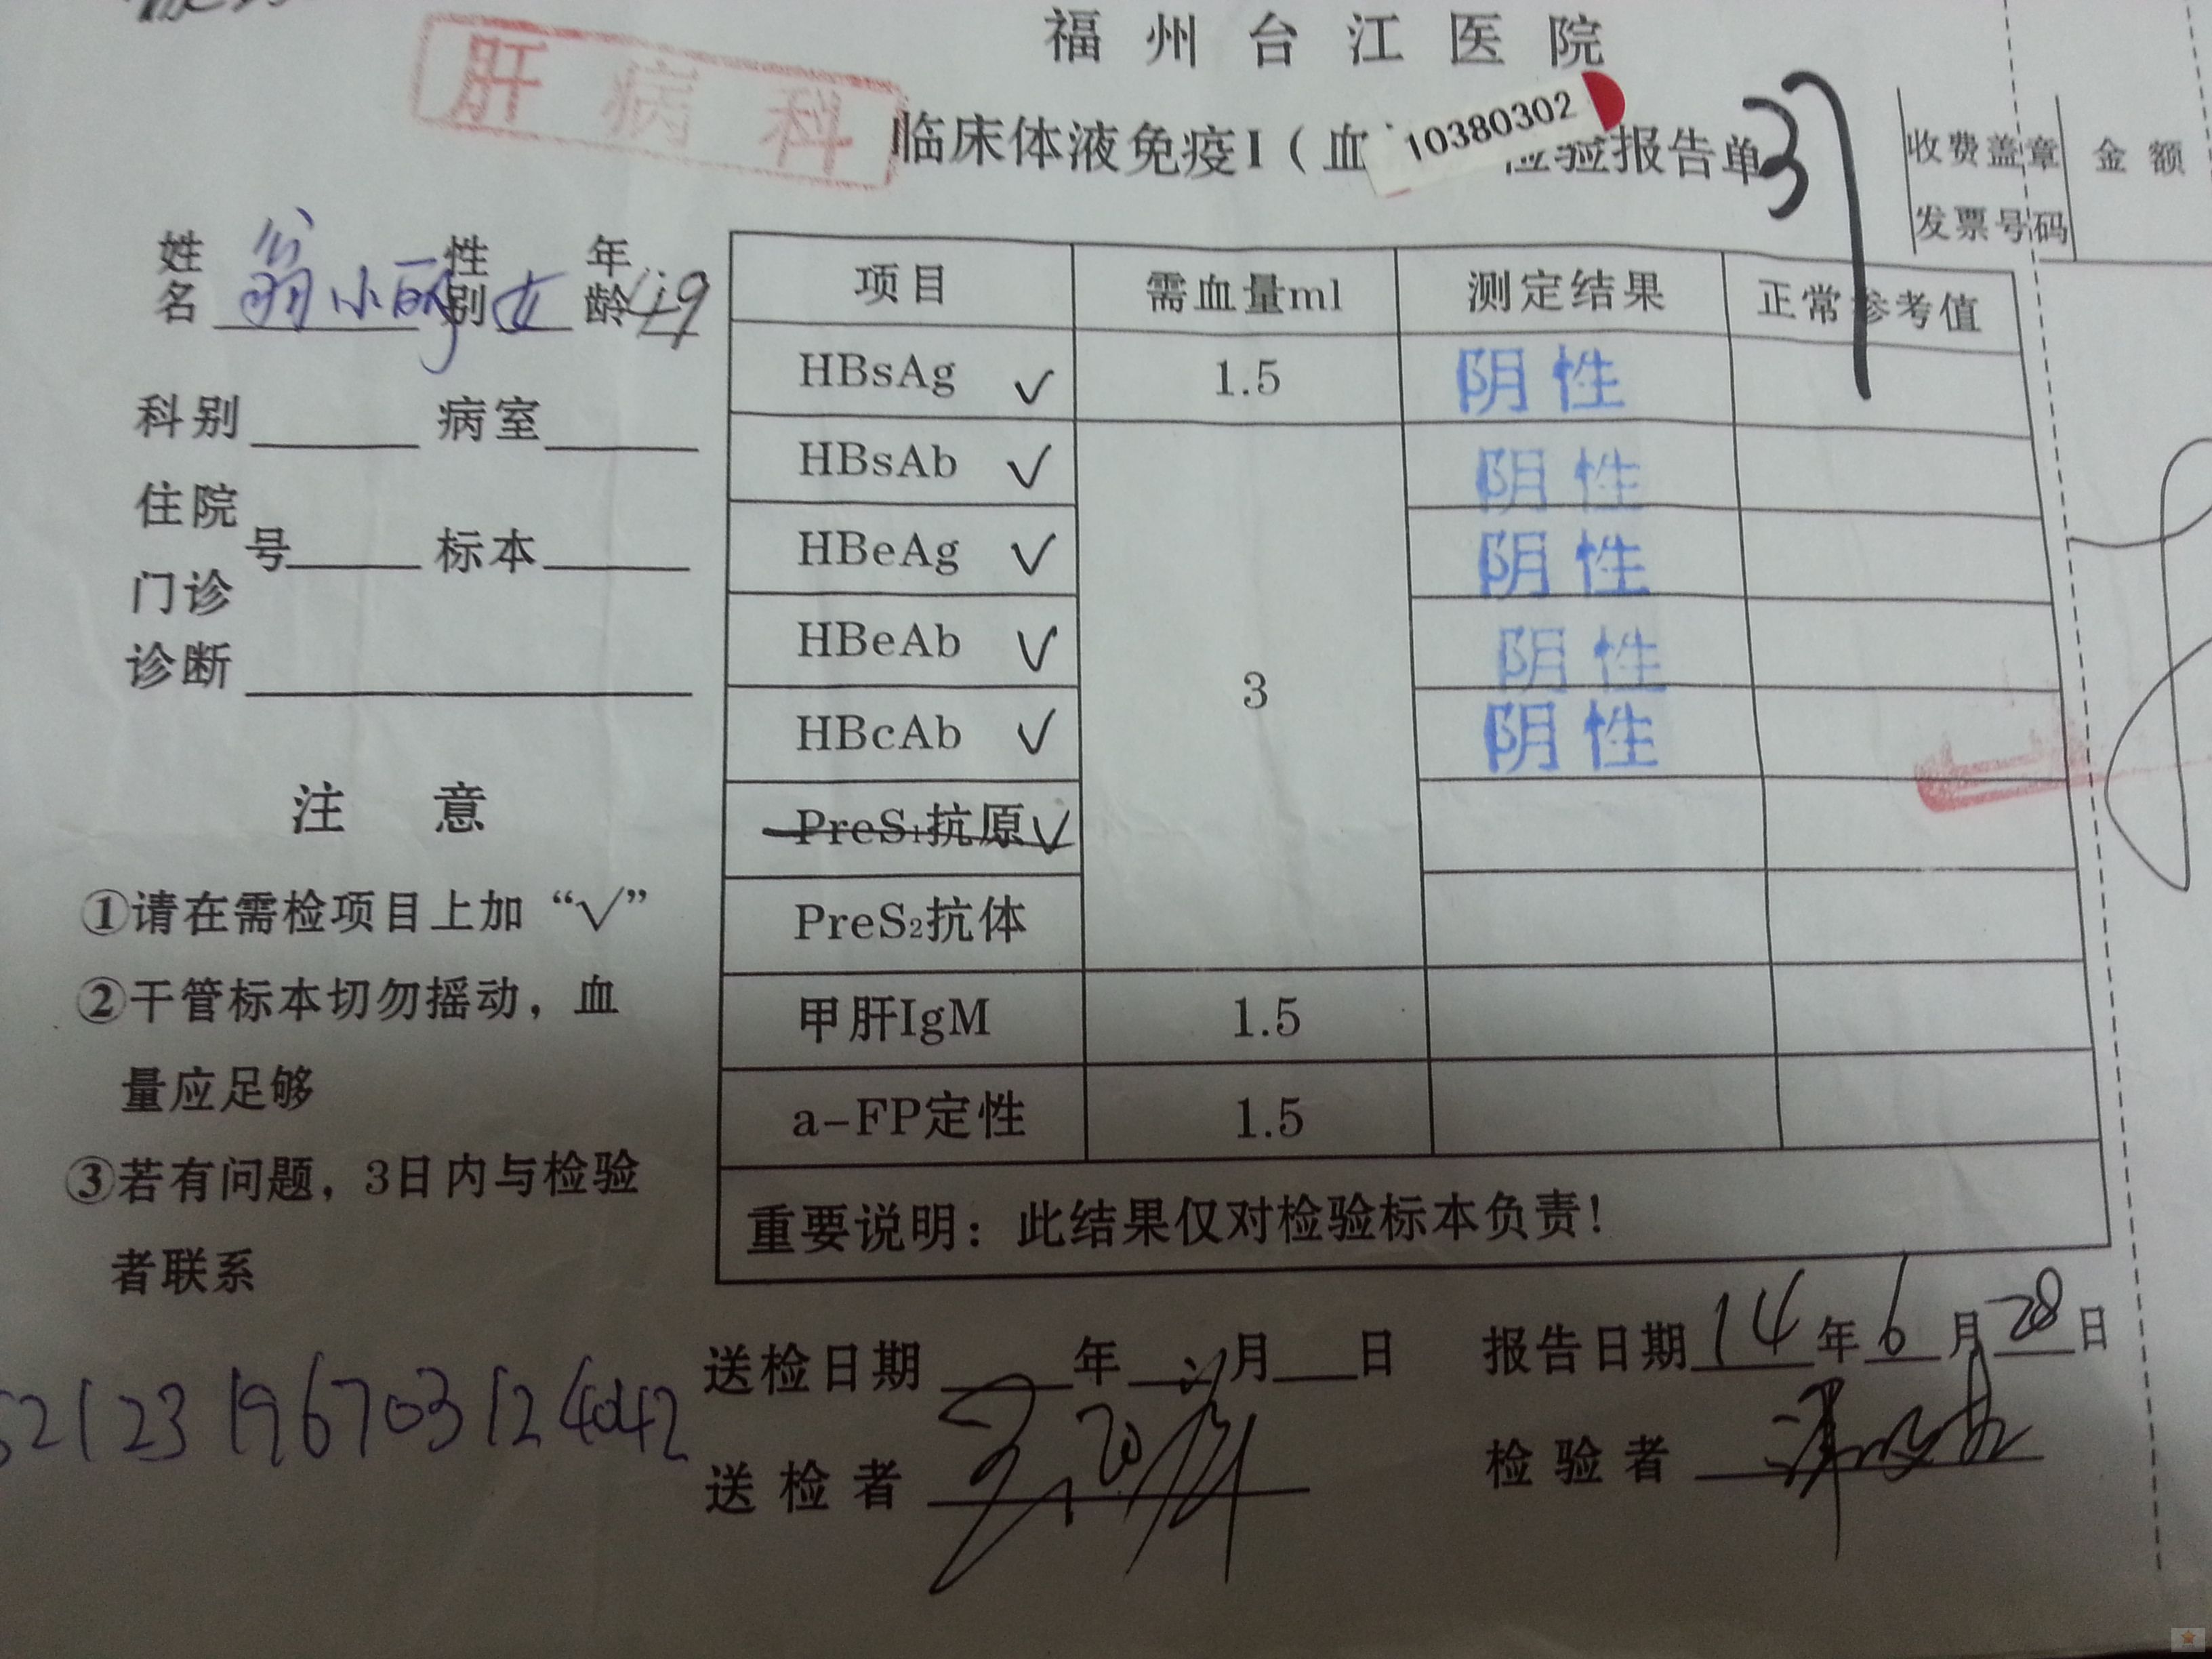 福州台江医院
肝病科
临床体液免疫I（血 10380302 检验报告单
37
收费盖章 金额
发票号码
姓名 翁小丽 性别 女 年龄 49
科别 病室
住院
号 标本
门诊
诊断
注意
①请在需检项目上加“√”
②干管标本切勿摇动，血
量应足够
③若有问题，3日内与检验
者联系
项目 需血量ml 测定结果 正常参考值
HBsAg √ 1.5 阴性
HBsAb √ 阴性
HBeAg √ 阴性
HBeAb √ 3 阴性
HBcAb √ 阴性
PreS1抗原 √
PreS2抗体
甲肝IgM 1.5
a-FP定性 1.5
重要说明：此结果仅对检验标本负责！
送检日期 年 月 日 报告日期 14年6月28日
送检者 检验者
52123196703124042